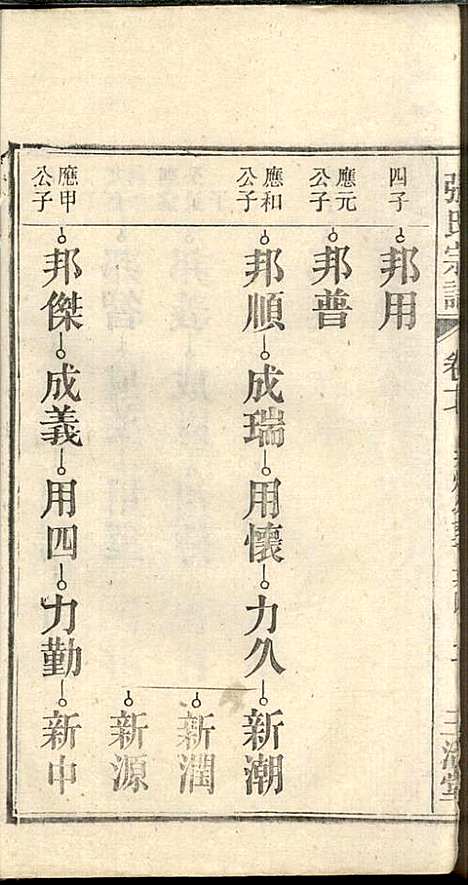 張氏宗譜
四子
邦用
應元公子
邦普
應和公子
邦順 成瑞 用懷 力久 新潮
新潤
新源
應甲公子
邦傑 成義 用四 力勤 新中